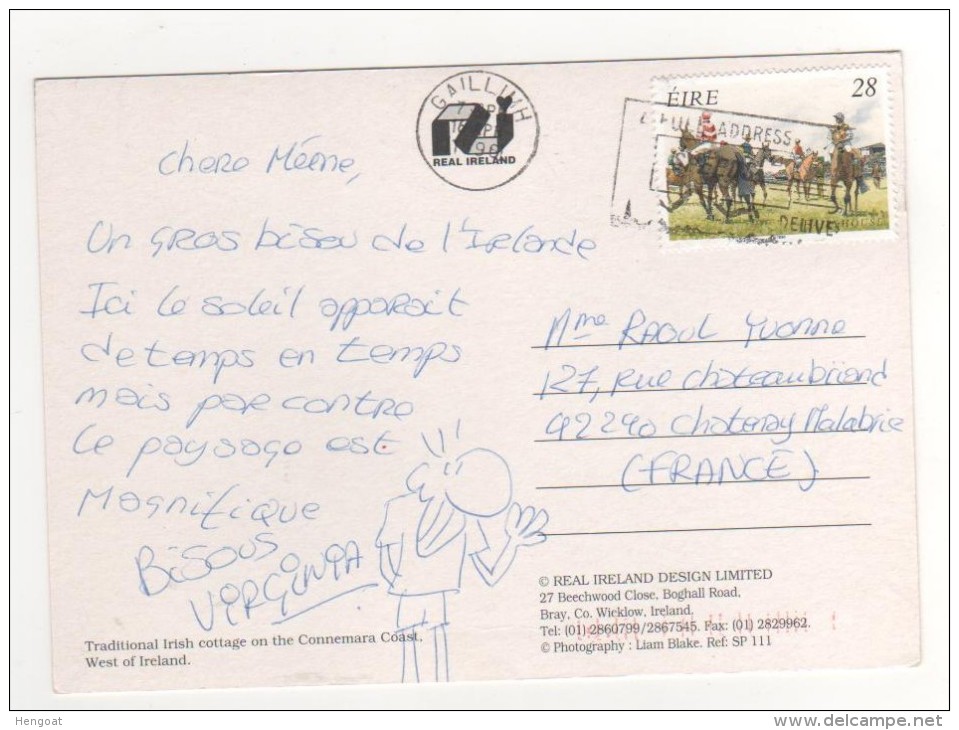 GAILLIMH
REAL IRELAND
ÉIRE 28
FULL ADDRESS
Chere Méme,
Un gros bisou de l'Irlande
Ici le soleil apparait
de temps en temps
mais par contre
le paysage est
Magnifique
Bisous
VIRGINIA
Mme RAOUL Yvonne
127, rue chateaubriand
92290 chatenay Malabrie
(FRANCE)
Traditional Irish cottage on the Connemara Coast,
West of Ireland.
© REAL IRELAND DESIGN LIMITED
27 Beechwood Close, Boghall Road,
Bray, Co. Wicklow, Ireland.
Tel: (01) 2860799/2867545. Fax: (01) 2829962.
© Photography : Liam Blake. Ref: SP 111
Hengoat
delcampe.net